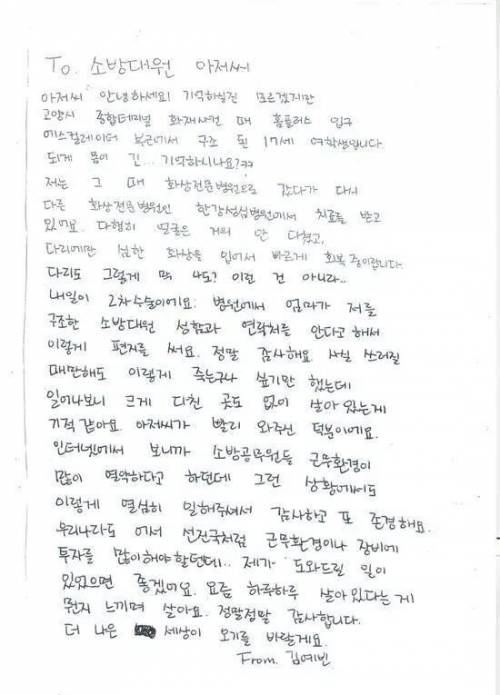 To. 소방대원 아저씨
아저씨 안녕하세요! 기억하실진 모르겠지만
고양시 종합터미널 화재사건 때 홈플러스 입구
에스컬레이터 부근에서 구조 된 17세 여학생입니다
되게 몸이 긴... 기억하시나요?ㅋㅋ
저는 그 때 화상전문병원으로 갔다가 다시
다른 화상전문병원인 한강성심병원에서 치료를 받고
있어요. 다행히 얼굴은 거의 안 다쳤고,
다리에만 심한 화상을 입어서 빠르게 회복 중이랍니다.
다리도 그렇게 막 나도? 이런 건 아니라..
내일이 2차수술이에요. 병원에서 엄마가 저를
구조한 소방대원 성함과 연락처를 안다고 해서
이렇게 편지를 써요. 정말 감사해요. 사실 쓰러질
때만해도 이렇게 죽는구나 싶기만 했는데
일어나보니 크게 다친 곳도 없이 살아있는게
기적같아요. 아저씨가 빨리 와주신 덕분이에요.
인터넷에서 보니까 소방공무원들 근무환경이
많이 열악하다고 하던데 그런 상황에서도
이렇게 열심히 일해주셔서 감사하고 또 존경해요.
우리나라도 어서 선진국처럼 근무환경이나 장비에
투자를 많이해야할텐데.. 제가 도와드릴 일이
있었으면 좋겠어요. 요즘 하루하루 살아있다는 게
뭔지 느끼며 살아요. 정말정말 감사합니다.
더 나은 세상이 오기를 바랄게요.
From. 김예빈